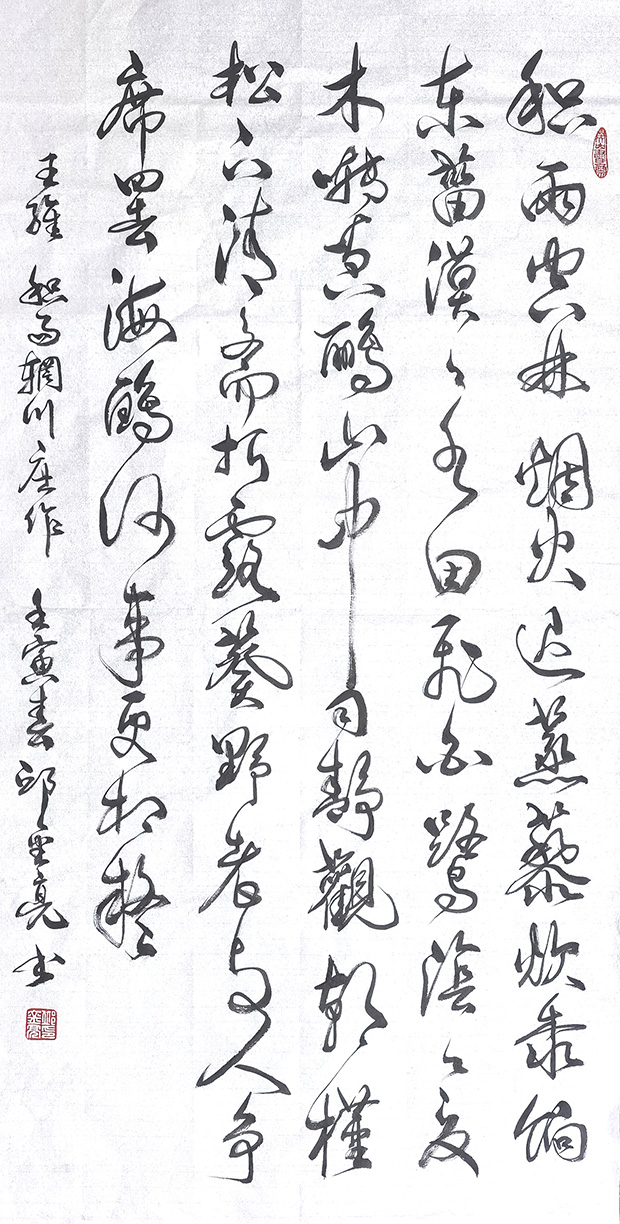 积雨空林烟火迟蒸藜炊黍饷
东菑漠々水田飞白鹭阴々夏
木啭黄鹂山中习静观朝槿
松下清斋折露葵野老与人争
席罢海鸥何事更相疑
王维 积雨辋川庄作 壬寅春邱金亮书